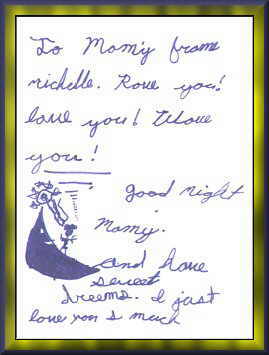 To Momy frome
michelle. Rove you!
love you! I love
you!
good night
Momy.
and have
sweet
dreems. I just
love you s much